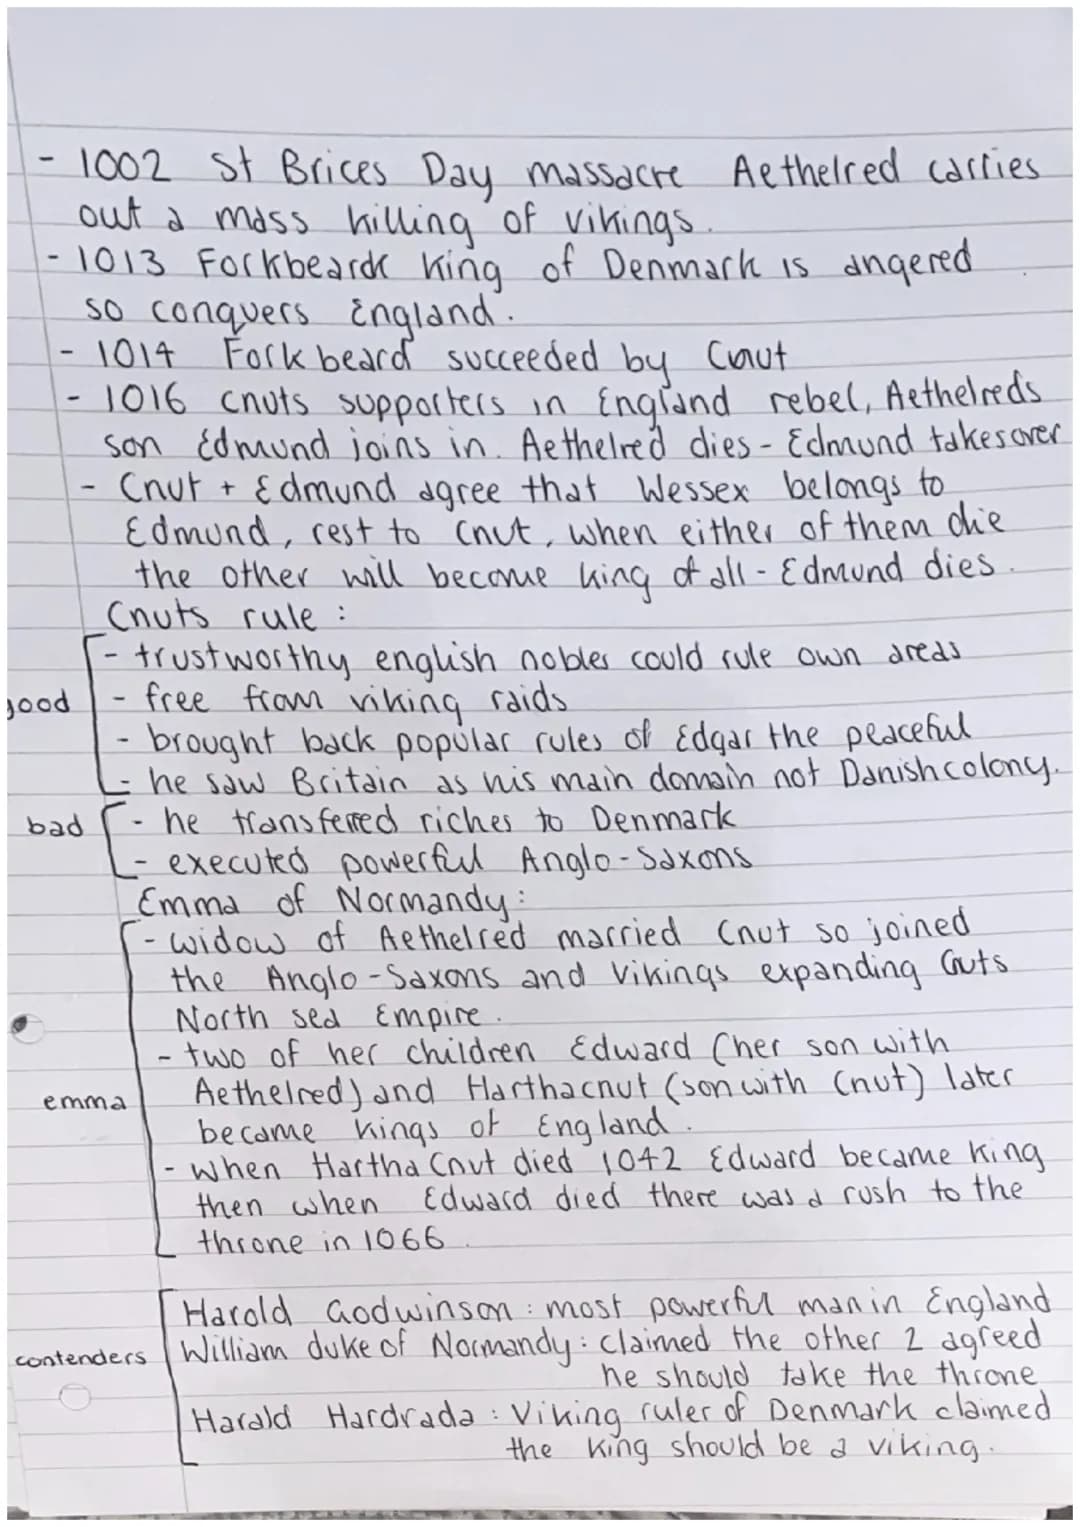 - 1002 St Brices Day massacre Aethelred carries
out a mass killing of vikings.
- 1013 Forkbeard King of Denmark is angered
so conquers England.
- 1014 Forkbeard succeeded by Cnut
- 1016 cnuts supporters in England rebel, Aethelreds
son Edmund joins in. Aethelred dies - Edmund takes over
- Cnut + Edmund agree that Wessex belongs to
Edmund, rest to Cnut, when either of them die
the other will become king of all - Edmund dies.
Cnuts rule :
- trustworthy english nobles could rule own areas
good - free from viking raids
- brought back popular rules of Edgar the peaceful
- he saw Britain as his main domain not Danish colony.
bad - he transferred riches to Denmark
- executed powerful Anglo-Saxons
Emma of Normandy:
- widow of Aethelred married Cnut so joined
the Anglo-Saxons and Vikings expanding Cnuts
North sea Empire.
- two of her children Edward (her son with
emma Aethelred) and Harthacnut (son with Cnut) later
became kings of England.
- when HarthaCnut died 1042 Edward became King
then when Edward died there was a rush to the
throne in 1066.
Harold Godwinson : most powerful man in England
contenders William duke of Normandy : claimed the other 2 agreed
he should take the throne
Harald Hardrada : Viking ruler of Denmark claimed
the king should be a viking.